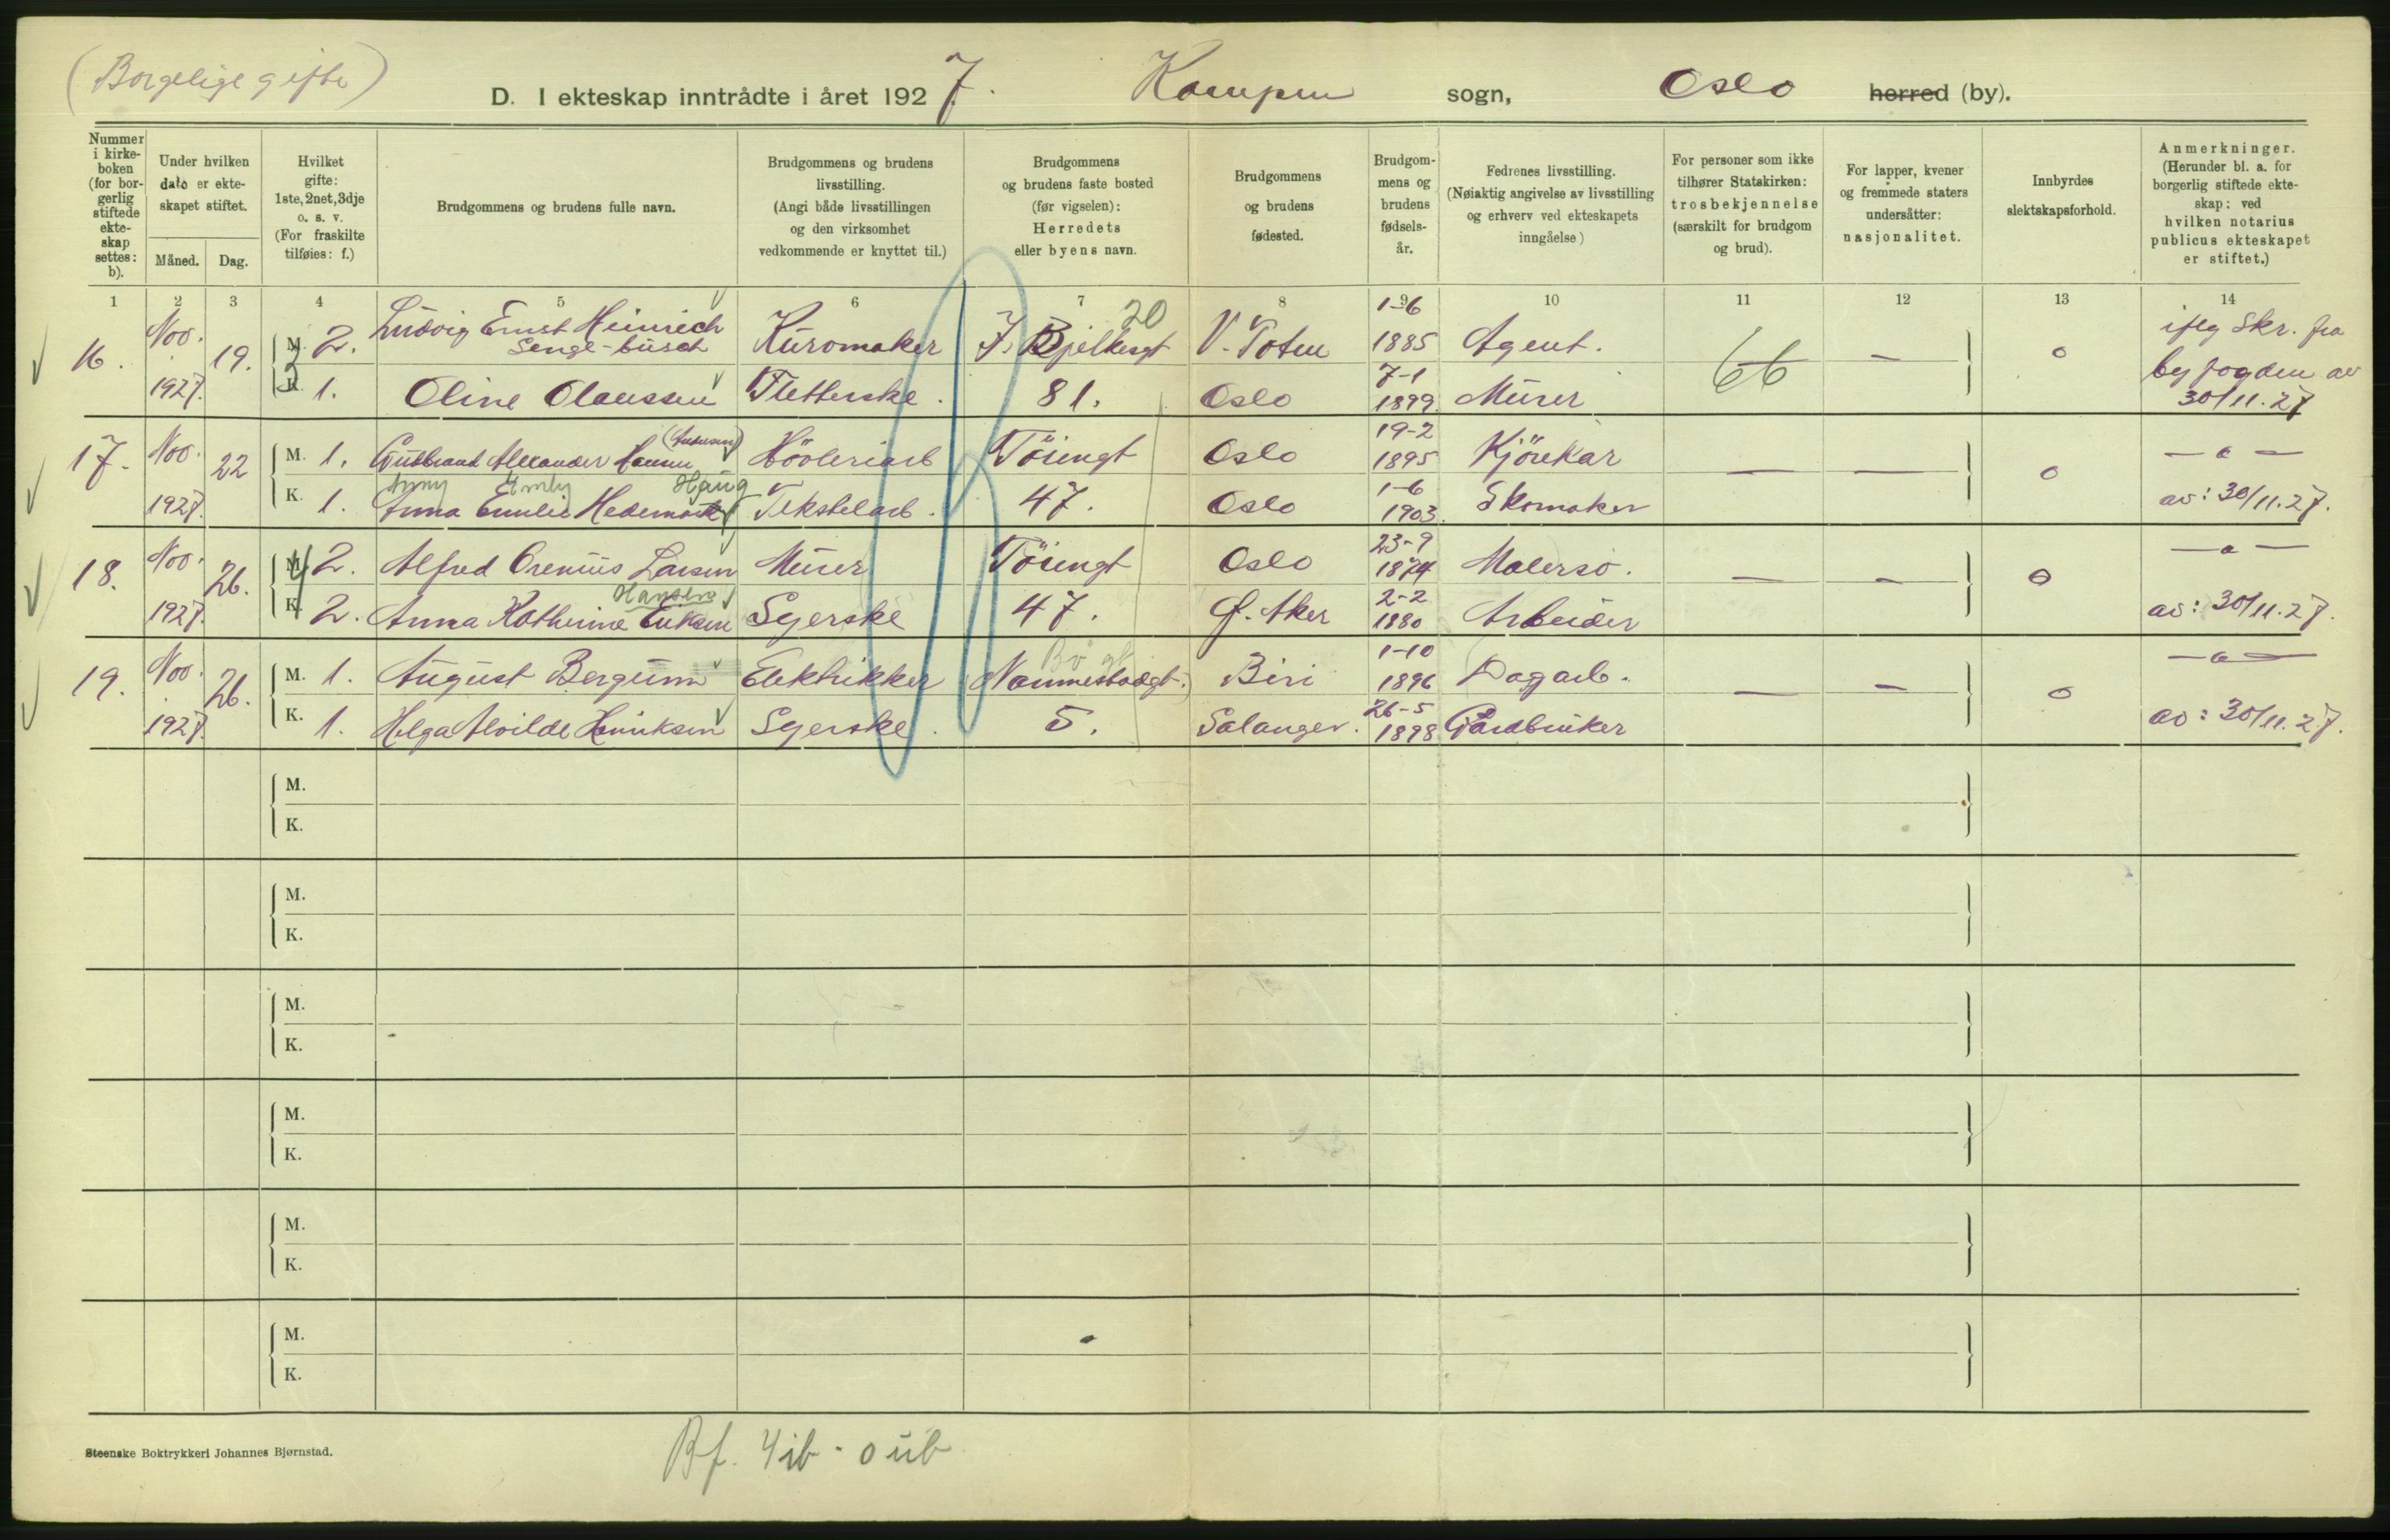 (Borgelige gifte)
D. I ekteskap inntrådte i året 1927. Kampen sogn, Oslo herred (by).
Nummer i kirkeboken (for borgerlig stiftede ekteskap settes: b).
Under hvilken dato er ekteskapet stiftet.
Måned. Dag.
Hvilket gifte: 1ste, 2net, 3dje o. s. v. (For fraskilte tilføies: f.)
Brudgommens og brudens fulle navn.
Brudgommens og brudens livsstilling. (Angi både livsstillingen og den virksomhet vedkommende er knyttet til.)
Brudgommens og brudens faste bosted (før vigselen): Herredets eller byens navn.
Brudgommens og brudens fødested.
Brudgommens og brudens fødselsår.
Fedrenes livsstilling. (Nøiaktig angivelse av livsstilling og erhverv ved ekteskapets inngåelse)
For personer som ikke tilhører Statskirken: trosbekjennelse (særskilt for brudgom og brud).
For lapper, kvener og fremmede staters undersåtter: nasjonalitet.
Innbyrdes slektskapsforhold.
Anmerkninger. (Herunder bl. a. for borgerlig stiftede ekteskap: ved hvilken notarius publicus ekteskapet er stiftet.)
1 2 3 4 5 6 7 8 9 10 11 12 13 14
16. Nov. 1927. 19. M. 2. Ludvig Ernst Heinrich Senge-busch Kurvmaker J. Bjelkesgt 20 V. Toten 1-6 1885 Agent. 66 — o iflg skr. fra
K. 1. Oline Olaussen Fletterske. 81. Oslo 7-1 1899. Murer byfogden av 30/11.27
17. Nov. 1927. 22 M. 1. Gudbrand Alexander Hansen (Andersen) Høvleriarb Töiengt Oslo 19-2 1895 Kjörekar — — o — " —
Anny Emly Haug
K. 1. Anna Emilie Hedemark Tekstilarb. 47. Oslo 1-6 1903. Skomaker av: 30/11.27.
18. Nov. 1927. 26. M. 2. Alfred Orenius Larsen Murer Töiengt Oslo 23-9 1874 Malersv. — — o — " —
Hansen
K. 2. Anna Kathrine Eriksen Syerske 47. Ø. Aker 2-2 1880 Arbeider av: 30/11.27.
19. Nov. 1927. 26. M. 1. August Bergum Elektrikker Nannestadgt. Biri 1-10 1896 Dagarb. — — o — " —
K. 1. Helga Alvilde Henriksen Syerske. 5. Salangen. 26-5 1898 Gårdbruker av: 30/11.27.
M.
K.
M.
K.
M.
K.
M.
K.
M.
K.
M.
K.
Steenske Boktrykkeri Johannes Bjørnstad.
Bf. 4 ib - o ub